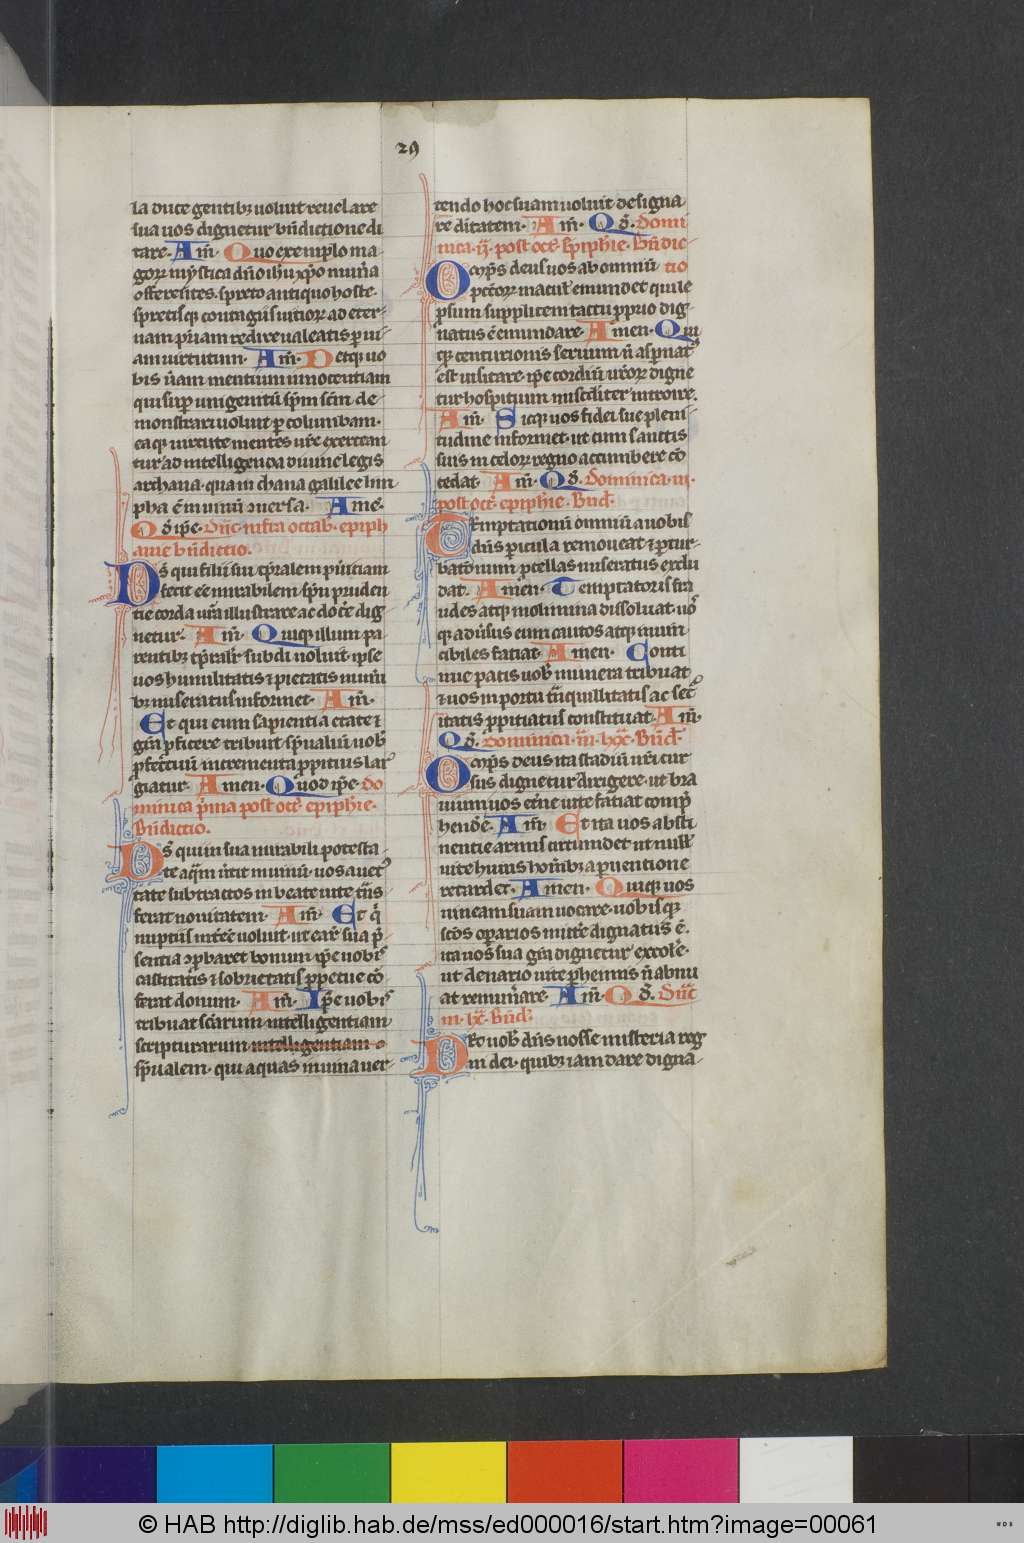 29
la duce gentibꝫ uoluit reuelare
sua uos dignetur bñdictione di
tare. Am̄. Quo exemplo ma-
goꝝ mystica dño ihu xp̄o mun̄a
offerentes. spreto antiquo hoste.
spretisqꝫ contagiis uitioꝝ ad eter-
nam pr̄iam redire ualeatis per ui-
am uirtutum. Am̄. Detqꝫ uo
bis ueram mentium innocentiam
qui sup unigenitū sp̄m sc̄m de-
monstrari uoluit per columbam.
eaqꝫ uirtute mentes ur̄e exercean
tur ad intelligenda diuine legis
archana. quam chana galilee lim
pha ē in uinū ꝯuersa. Amē.
Qd̄ ip̄e. Dn̄c infra octab epiph
anie bn̄dictio.
Ds̄ qui filii sui tp̄ralem puericiam
fecit eē mirabilem. sp̄m pruden
tie corda ur̄a illustrare ac docē dig
netur. Am̄. Quiqꝫ illum pa
rentibꝫ tp̄raliter subdi uoluit. ipse
uos humilitatis ⁊ pietatis mun̄i
bꝫ miseratus informet. Am̄.
Et qui eum sapientia etate ⁊
gr̄a proficere tribuit. sp̄ualiū uob̄
profectuū incrementa propitius lar
giatur. Amen. Quod ip̄e. Do
minica p̄ma post oct̄. epiphie.
Bn̄dictio.
Ds̄ qui in sua mirabili potesta-
te aq̄m ūtit in uinū. uos a uet᷑
tate subtractos in beate uite t̄ns-
ferat nouitatem. Am̄. Et q̄
nuptiis int̄ēe uoluit. ut eaꝝ sua p̄-
sentia ꝯprobaret bonum. ip̄e uobis
castitatis ⁊ sobrietatis perpetue cō
ferat donum. Am̄. Ip̄e uobis
tribuat sc̄arum intelligentiam
scripturarum intelligentiam
sp̄ualem. qui aquas in uina uer-
tendo hoc suam uoluit designa-
re ditatem. Am̄. Qd̄. Domi
nica ij. post oct̄. Epiphie. Bn̄dic-
Omp̄s deus uos ab omniū tio
peccatoꝝ maculis emundet qui le
prosum supplicem tactu proprio dig-
natus ē emundare. Amen. Qui
qꝫ centurionis seruum n̄ aspernat᷑
est uisitare. ip̄e cordiū ur̄oꝝ digne
tur hospitium misericorditer introire.
Am̄. Sicqꝫ uos fidei sue pleni-
tudine informet. ut cum sanctis
suis in celoꝝ regno accumbere cō
cedat. Am̄. Qd̄. Dominica iii.
post oct̄. epiphie. Bn̄d.
Temptationū omniū a uobis
dn̄s pericula remoueat ⁊ pertur-
bationum procellas miseratus exclu
dat. Amen. Temptatoris fra
udes atqꝫ molimina dissoluat. uos
qꝫ aduersus eum cautos atqꝫ inuin-
cibiles faciat. Amen. Conti
nue pacis uob̄ munera tribuat
⁊ uos in portu tr̄nquillitatis ac sec᷑
itatis propitiatus constituat. Am̄.
Qd̄. Dominica. in. lxx. Bn̄d.
Omp̄s deus ita studiū ur̄i cur
sus dignetur dirigere. ut bra
uium uos et̄ne uite faciat comp̄
hendē. Am̄. Et ita uos absti
nentie armis circumdet. ut nullis
uite huius honeribꝫ a peruentione
retardet. Amen. Quiqꝫ uos
uineam suam uocare. uobisqꝫ
sc̄os operarios mittē dignatus ē.
ita uos sua gr̄a dignetur excolē.
ut denario uite perhennis n̄ abnu
at remunerare. Am̄. Qd̄. Dn̄c
in. lx. Bn̄d.
Det uob̄ dn̄s nosse misteria reg
ni dei. quibꝫ iam dare digna-
© HAB http://diglib.hab.de/mss/ed000016/start.htm?image=00061